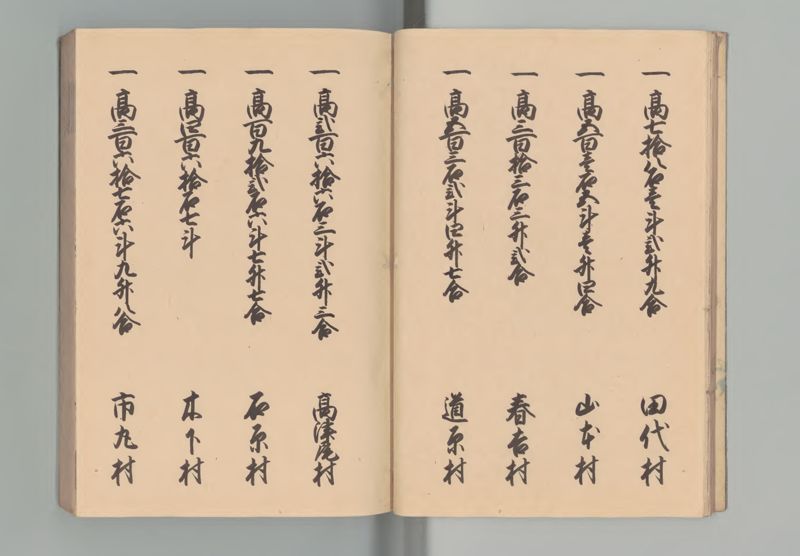 一高七拾八石壱斗弐升九合 田代村
一高五百壱石五斗壱升四合 山本村
一高三百拾三石三升弐合 春吉村
一高五百三石弐斗四升七合 道原村
一高弐百六拾六石三斗弐升三合 高津尾村
一高百九拾弐石六斗七升七合 石原村
一高四百六拾石七斗 木下村
一高三百六拾七石六斗九升八合 市丸村